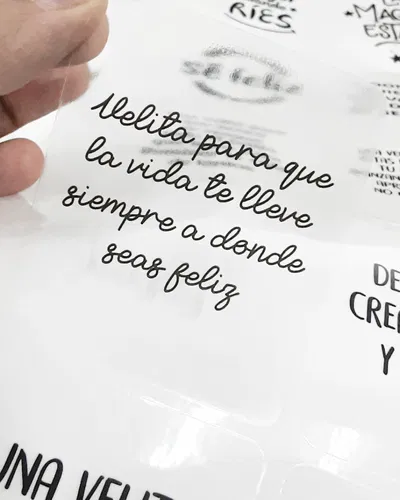 RIES
MAG
EST
sé feliz
Velita para que
la vida te lleve
siempre a donde
seas feliz
DE
CREA
Y
UNA VELIT